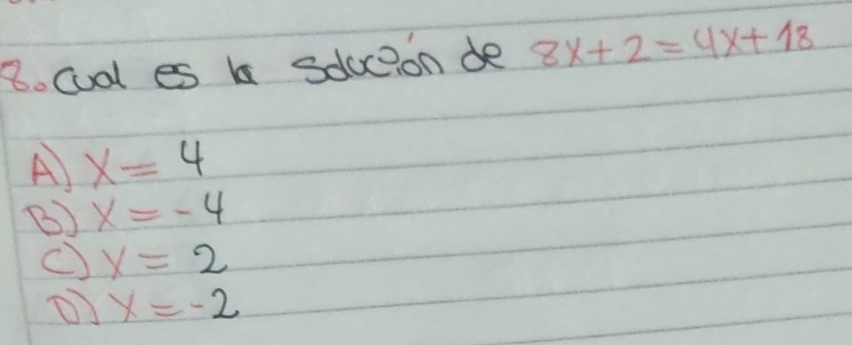 8. Cual es la Solución de 8x+2=4x+18
A) x= 4
B) x=-4
C) x= 2
D) x=-2